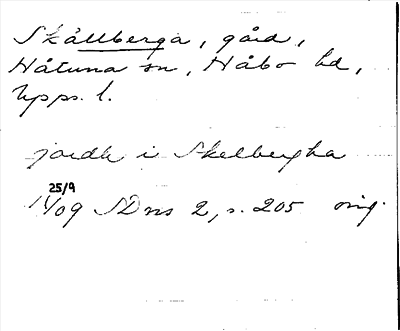 Skållberga, gård,
Håtuna sn, Håbo hd,
Upps. l.
jordh i Skelbergha
25/9
1409 SDns 2, s. 205 orig.